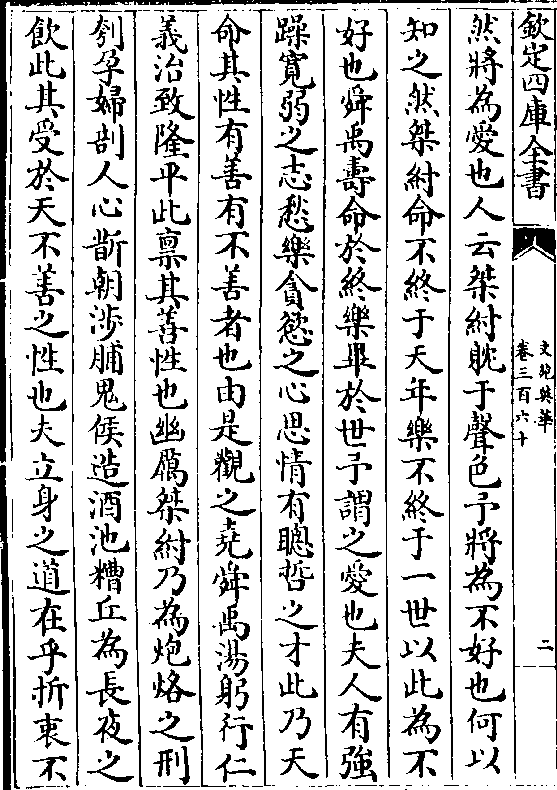 欽定四庫全書
文苑英華
卷三百六十
二
然將為愛也人云桀紂躭于聲色予將為不好也何以
知之然桀紂命不終于天年樂不終于一世以此為不
好也舜禹壽命於終樂畢於世予謂之愛也夫人有強
躁寛弱之志愁樂貪慾之心思情有聰哲之才此乃天
命其性有善有不善者也由是觀之堯舜禹湯躬行仁
義治致隆平此禀其善性也幽厲桀紂乃為炮烙之刑
刳孕婦剖人心斮朝涉脯鬼侯造酒池糟丘為長夜之
飲此其受於天不善之性也夫立身之道在乎折衷不